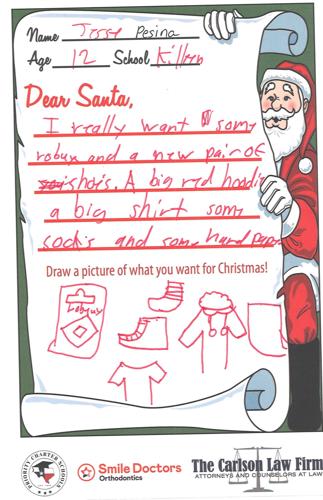 Name Jesse Pesina
Age 12 School Killeen
Dear Santa,
I really want som
robux and a new pair of
shois. A big red hoodi
a big shirt som
socks and som hand
Draw a picture of what you want for Christmas!
Robux
PRIORITY CHARTER SCHOOLS
Smile Doctors
Orthodontics
The Carlson Law Firm
ATTORNEYS AND COUNSELORS AT LAW